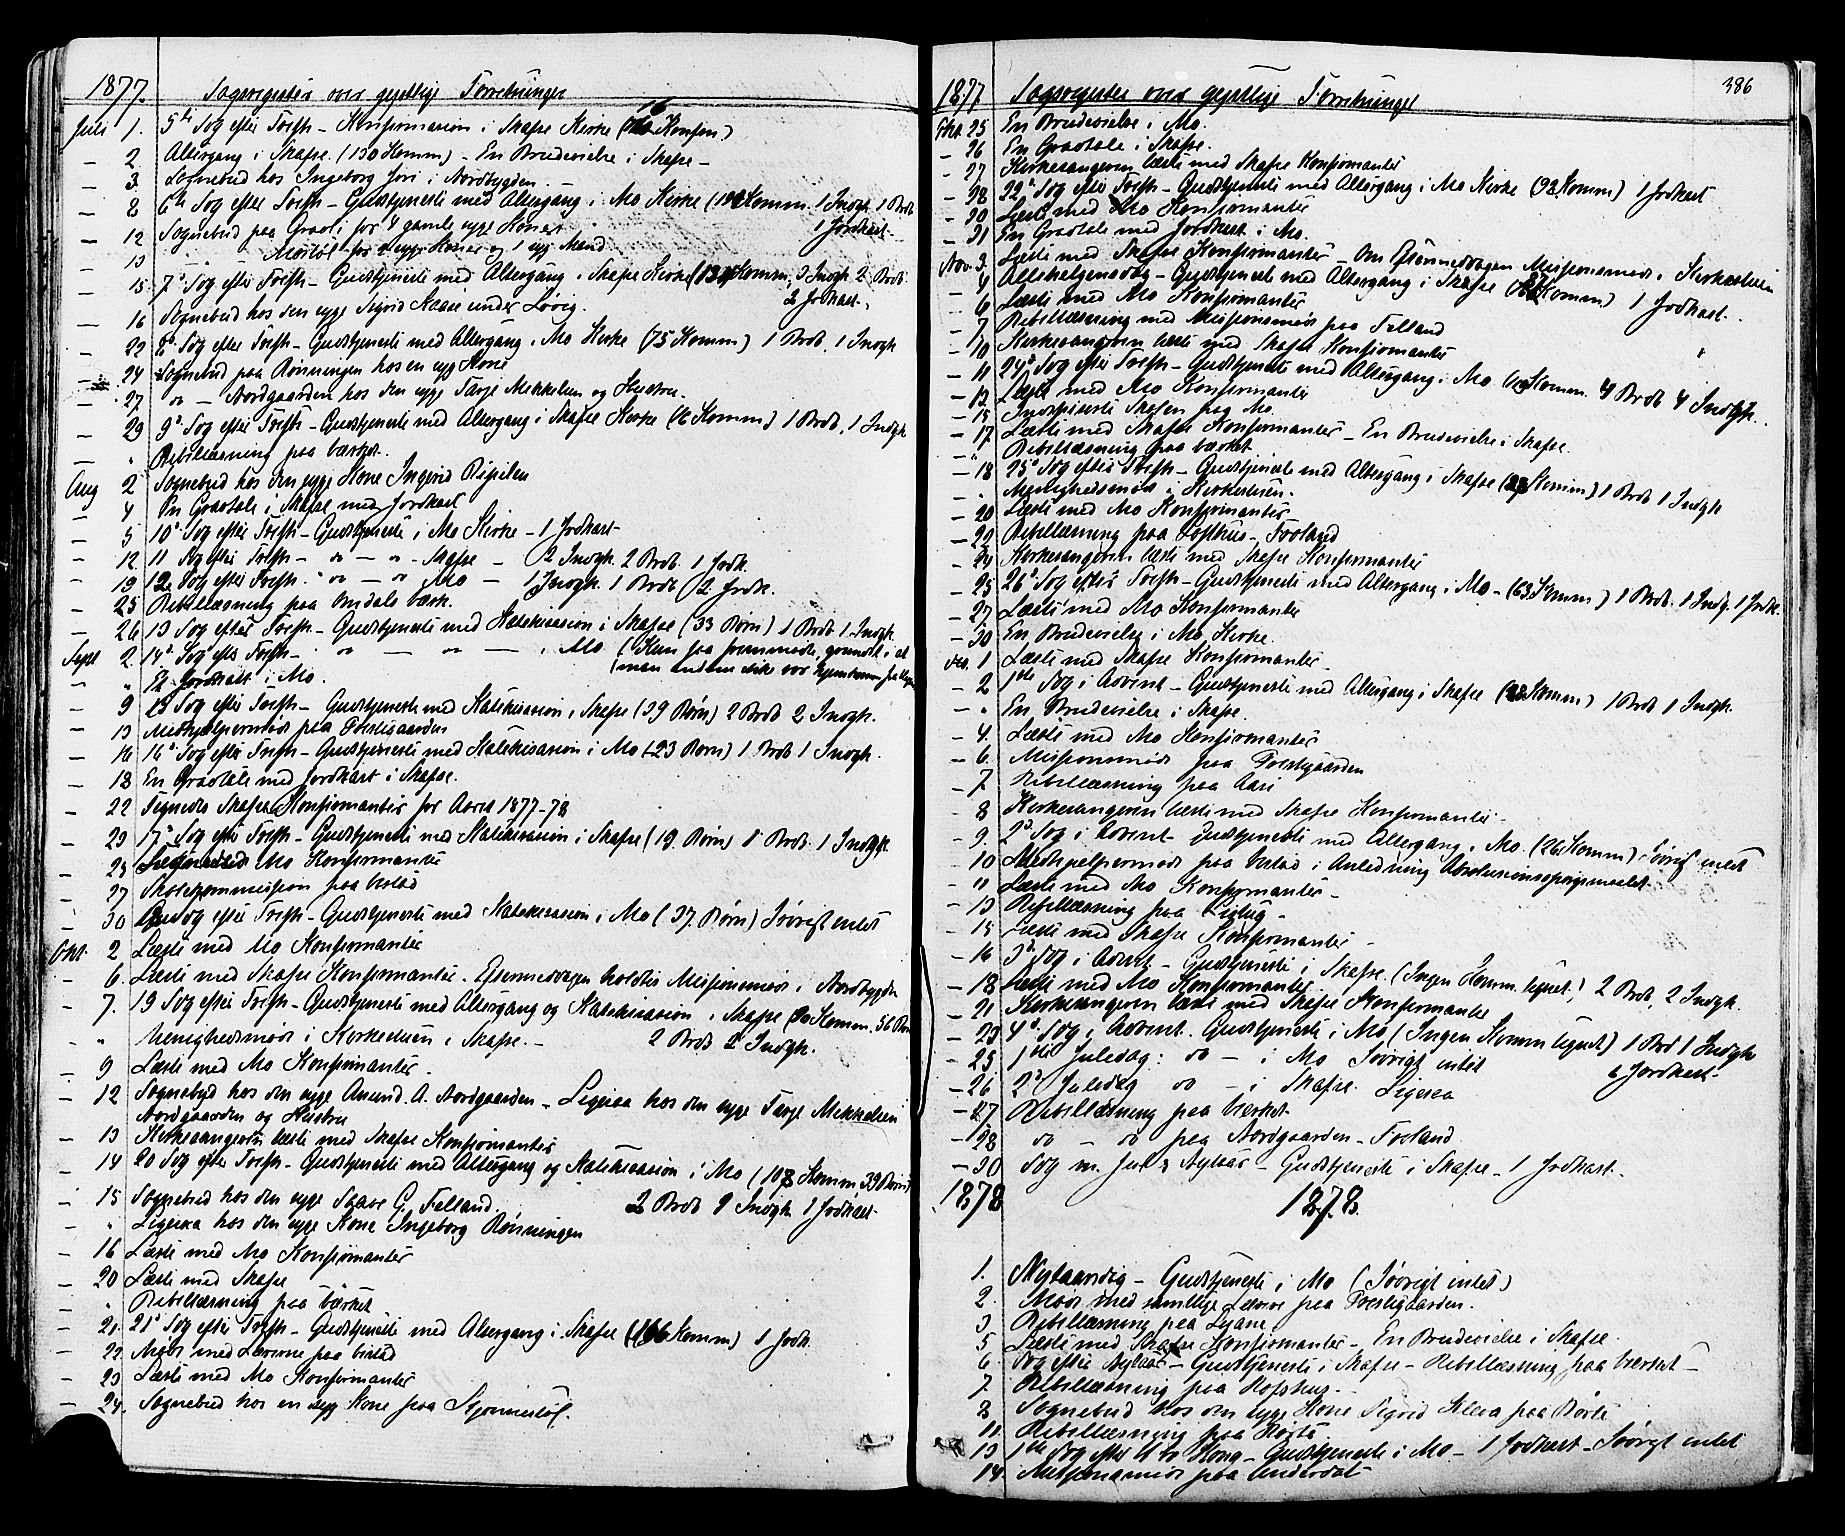 1877. Dagsregister over geistlige Forretninger
Juli 1. 5te Søg efter Trefh - Konfirmasion i Skafse Kirke (16 Konfm)
- 2. Altergang i Skafse. (130 Komm) - En Brudevielse i Skafse -
- 3. Sognebud hos Ingeborg Jori i Nordbygden
- 8 6te Søg efter Trefh - Gudstjeneste med Altergang i Mo Kirke (Komm. 1 Indgk 1 Brdb
1 Jordkast
- 12 Sognebud paa Graol for 4 gamle syge Koner
- 13 for syge Koner og 1 syg Mand
- 15. 7de Søg efter Trefh - Gudstjeneste med Altergang i Skafse Kirke (Komm, 3 Indgk 2 Brdb
2 Jordkast.
- 16 Sognebud hos den syge Sigrid under Løvig.
- 22 8de Søg efter Trefh - Gudstjeneste med Altergang i Mo Kirke (75 Komm) 1 Brdb. 1 Indgk
- 24 Sognebud paa Rønningen hos en syg Kone
- 27 do - Nordgaarden hos den syge Tarje Mekkelsen og Hustru.
- 29 9de Søg efter Trefh - Gudstjeneste med Altergang i Skafse Kirke (16 Komm) 1 Brdb, 1 Indgk
- " Bibellæsning paa Værket.
Aug 2 Sognebud hos den syge Kone Ingerid
- 4 En Gravtale i Skafse med Jordkast
- 5 10de Søg efter Trefh - Gudstjeneste i Mo Kirke - 1 Jordkast
- 12 11 Søg efter Trefh - do - do - Skafse - 2 Indgk. 2 Brdb. 1 Jordk.
- 19 12 Søg efter Trefh. - do - do Mo - 1 Indgk. 1 Brdb 2 Jordk.
- 25 Bibellæsning paa Omdals Værk.
- 26 13 Søg efter Trefh - Gudstjeneste med Katekisasion i Skafse (33 Børn) 1 Brdb 1 Indgk.
Sept 2. 14de Søg efter Trefh - do - do - i Mo (Kun faa fremmødte, grundet i at
man endnu ikke var hjemkommen fra
- " Et Jordkast i Mo.
- 9 15 Søg efter Trefh - Gudstjeneste med Katekisasion i Skafse (39 Børn) 2 Brdb 2 Indgk.
- 13 Medhjælpermøde paa Prestegaarden
- 16 16de Søg efter Trefh - Gudstjeneste med Katekisasion i Mo (23 Børn) 1 Brdb 1 Indgk.
- 18 En Gravtale med Jordkast i Skafse.
- 22 Tegnedes Skafse Konfirmanter for Aaret 1877-78
- 23 17de Søg efter Trefh - Gudstjeneste med Katekisasion i Skafse (19 Børn) 1 Brdb. 1 Indgk
- 25 Mo Konfirmanter
- 27 Skolekommission paa Vistad
- 30 Søg efter Trefh - Gudstjeneste med Katekisasion i Mo (37 Børn) Iøvrigt intet
Okt. 2 Læste med Mo Konfirmanter
- 6. Læste med Skafse Konfirmanter. Eftermiddagen holdtes Missionsmøde i Nordbygden
- 7. 19 Søg efter Trefh - Gudstjeneste med Altergang og Katekisasion i Skafse (Komm. 56 Børn
2 Brdb 2 Indgk.
- " Menighedsmøde i Kirkestuen i Skafse. -
- 9 Læste med Mo Konfirmanter.
- 12 Sognebud hos den syge Amund A. Nordgaarden - Ligesaa hos den syge Tarje Mekkelsen
Nordgaarden og Hustru
- 13 Kirkesangeren læste med Skafse Konfirmanter
- 14 20 Søg efter Trefh - Gudstjeneste med Altergang og Katekisasion i Mo (108 Komm, 39 Børn)
2 Brdb 9 Indgk 1 Jordkast
- 15 Sognebud hos den syge G. Felland.
- " Ligesaa hos den syge Kone Ingeborg Rønningen
- 16 Læste med Mo Konfirmanter
- 20 Læste med Skafse
- " Bibellæsning paa Værket
- 21. 21de Søg efter Trefh - Gudstjeneste med Altergang i Skafse (166 Komm) 1 Jordk.
- 22 Møde med Lærerne paa Vistad
- 23 Læste med Mo Konfirmanter
- 24. Sognebud hos en syg Kone paa
1877 Dagsregister over geistlige Forretninger 386
Okt. 25 En Brudevielse i Mo.
- 26 En Gravtale i Skafse.
- 27 Kirkesangeren læste med Skafse Konfirmanter
- 28 22de Søg efter Trefh - Gudstjeneste med Altergang i Mo Kirke (92 Komm) 1 Jordkast
- 30 Læste med Mo Konfirmanter
- 31 En Gravtale med Jordkast i Mo.
Nov. 3 Læste med Skafse Konfirmanter - Om Eftermiddagen Missionsmøde i Kirkestuen
- 4 Allehelgensdag - Gudstjeneste med Altergang i Skafse (Komm) 1 Jordkast.
- 6 Læste med Mo Konfirmanter
- 7 Bibellæsning med Missionsmøde paa Felland
- 10 Kirkesangeren læste med Skafse Konfirmanter
- 11 24de Søg efter Trefh - Gudstjeneste med Altergang i Mo (Komm. 4 Brdb 4 Indgk.
- 13 Læste med Mo Konfirmanter
- 15 Inspiserte Skolen paa Mo.
- 17. Læste med Skafse Konfirmanter - En Brudevielse i Skafse.
- " Bibellæsning paa Værket
- 18 25de Søg efter Trefh - Gudstjeneste med Altergang i Skafse (Komm) 1 Brdb 1 Indgk
- " Menighedsmøde i Kirkestuen.
- 20 Læste med Mo Konfirmanter
- 22 Bibellæsning paa Lofthus -
- 24 Kirkesangeren læste med Skafse Konfirmanter
- 25 26de Søg efter Trefh - Gudstjeneste med Altergang i Mo - (63 Komm) 1 Brdb. 1 Indg. 1 Jordk.
- 27. Læste med Mo Konfirmanter
- 30 En Brudevielse i Mo Kirke.
Des. 1 Læste med Skafse Konfirmanter -
- 2 1ste Søg i Advent - Gudstjeneste med Altergang i Skafse (Komm) 1 Brdb 1 Indgk.
- " En Brudevielse i Skafse.
- 4. Læste med Mo Konfirmanter
- 6. Missionsmøde paa Prestegaarden
- 7. Bibellæsning paa Aase
- 8 Kirkesangeren læste med Skafse Konfirmanter -
- 9. 2den Søg i Advent - Gudstjeneste med Altergang i Mo. (26 Komm) Iøvrigt intet
- 10 Medhjælpermøde paa Vistad i Anledning Absolusionsspørgsmaalet.
- 11 Læste med Mo Konfirmanter -
- 13 Bibellæsning paa
- 15 Læste med Skafse Konfirmanter -
- 16 3de Søg i Advent - Gudstjeneste i Skafse. (Ingen Komm. tegnet.) 2 Brdb, 2 Indgk.
- 18 Læste med Mo Konfirmanter
- 21 Kirkesangeren læste med Skafse Konfirmanter
- 23 4de Søg i Advent. Gudstjeneste i Mo (Ingen Komm tegnet) 1 Brd 1 Indgk
- 25. 1ste Juledag: do - i Mo Iøvrigt intet Jordkast.
- 26. 2den Juledag do - i Skafse. Ligesaa
- 27 Bibellæsning paa Værket
- 28 do - do paa Nordgaarden -
- 30 Søg m. Jul & Nytaar - Gudstjeneste i Skafse - 1 Jordkast.
1878 1878.
1. Nytaarsdag - Gudstjeneste i Mo (Iøvrigt intet)
2. Møde med samtlige Lærere paa Prestegaarden.
3 Bibellæsning paa
5 Læste med Skafse Konfirmanter - En Brudevielse i Skafse.
6. Søg efter Nytaar - Gudstjeneste i Skafse - Bibellæsning paa Værket -
7. Bibellæsning paa Hofshus. -
8 Sognebud hos den syge Kone Sigrid paa Børte
11. Bibellæsning paa Børte
13 1ste Søg efter H. tr. Kong. - Gudstjeneste i Mo - 1 Jordkast - Iøvrigt intet
14. Missionsmøde paa